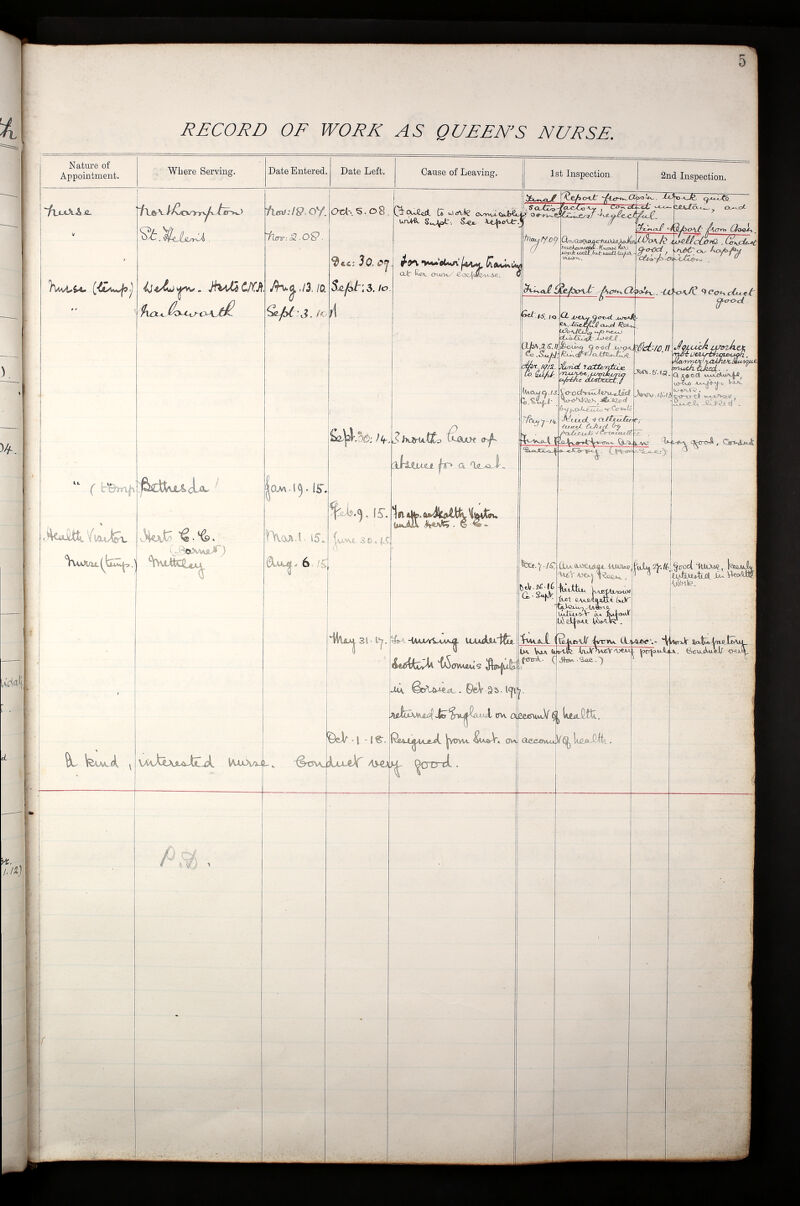 5
RECORD OF WORK AS QUEEN'S NURSE.
Nature of Appointment. Where Serving. Date Entered. Date Left. Cause of Leaving. 1st Inspection 2nd Inspection.
Nurse Northampton Nov: 18. 07. Oct. 5. 08. (Failed to work amicably with Supt. See report.)
Final Report from Assn. Work quite satisfactory, conduct uncertain, and sometimes neglectful.
" St. Helen's Nov: 2. 08. Dec: 30. 09 For midwifery training at her own expense.
May 17 09 An average nurse
Final Report from Assn. Work well done. Conduct good, not a happy disposition.
Nurse (temp) Welwyn. Herts C.N.A. Aug. 13. 10 Sept. 3. 10
Final Report from Assn. Work & conduct good
" Harlsworth Sept. 3. 10
Oct. 15. 10 A very good worker, tactful and keen working up new district well.
Apr. 25. 11 Co. Supt. Doing good work kind & attentive
Oct. 10. 11 A quick worker not very thorough. Manner rather brusque much liked.
Apr. 1912. Co Supt. Kind & attentive nurse, working up the district.
Nov. 5. 12. A good midwife, who enjoys her work.
May 9. 13. Co. Supt. Good interested worker, liked by patients & Comtt
Nov. 13 good nurse, much liked.
May 7. 14 Kind & attentive, much liked by patients & Committee
Sept. 30: 14. 3 months leave of absence for a rest.
Final Report from Assn Very good, Conduct satisfactory. (Hon. Sec.)
" (temp) Bethesda Jan. 19. 15. Feb. 9. 15. For app. as Health Visitor under Herts. C. C.
Health Visitor Herts C. C. (Barnet) Mar. 1. 15. June 30. 15
Nurse (temp.) Aug. 6. 15.
Dec. 7. 15 An average nurse, not very keen.
July 27. 16. Good nurse, keenly interested in Health Work.
Oct. 26. 16 Co. Supt. not energetic but taking more interest in Infant Welfare Work.
May 31. 17. For nursing under the Scottish Women's Hospital in Corsica. Oct 23. 1917. returned to England on account of health.
Final Report from Assoc:- Most satisfactory in her work but not very popular. Conduct very good. (Hon. Sec.)
Oct. 1. 18. Resigned from Inst. on account of health.
A kind, interested nurse. Conduct very good.
P.D.